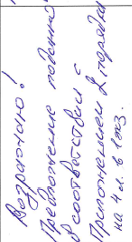 Возражаю!
Предложение подано
в соответствии с
Приложением в порядке
на 4 л. в 1 экз.